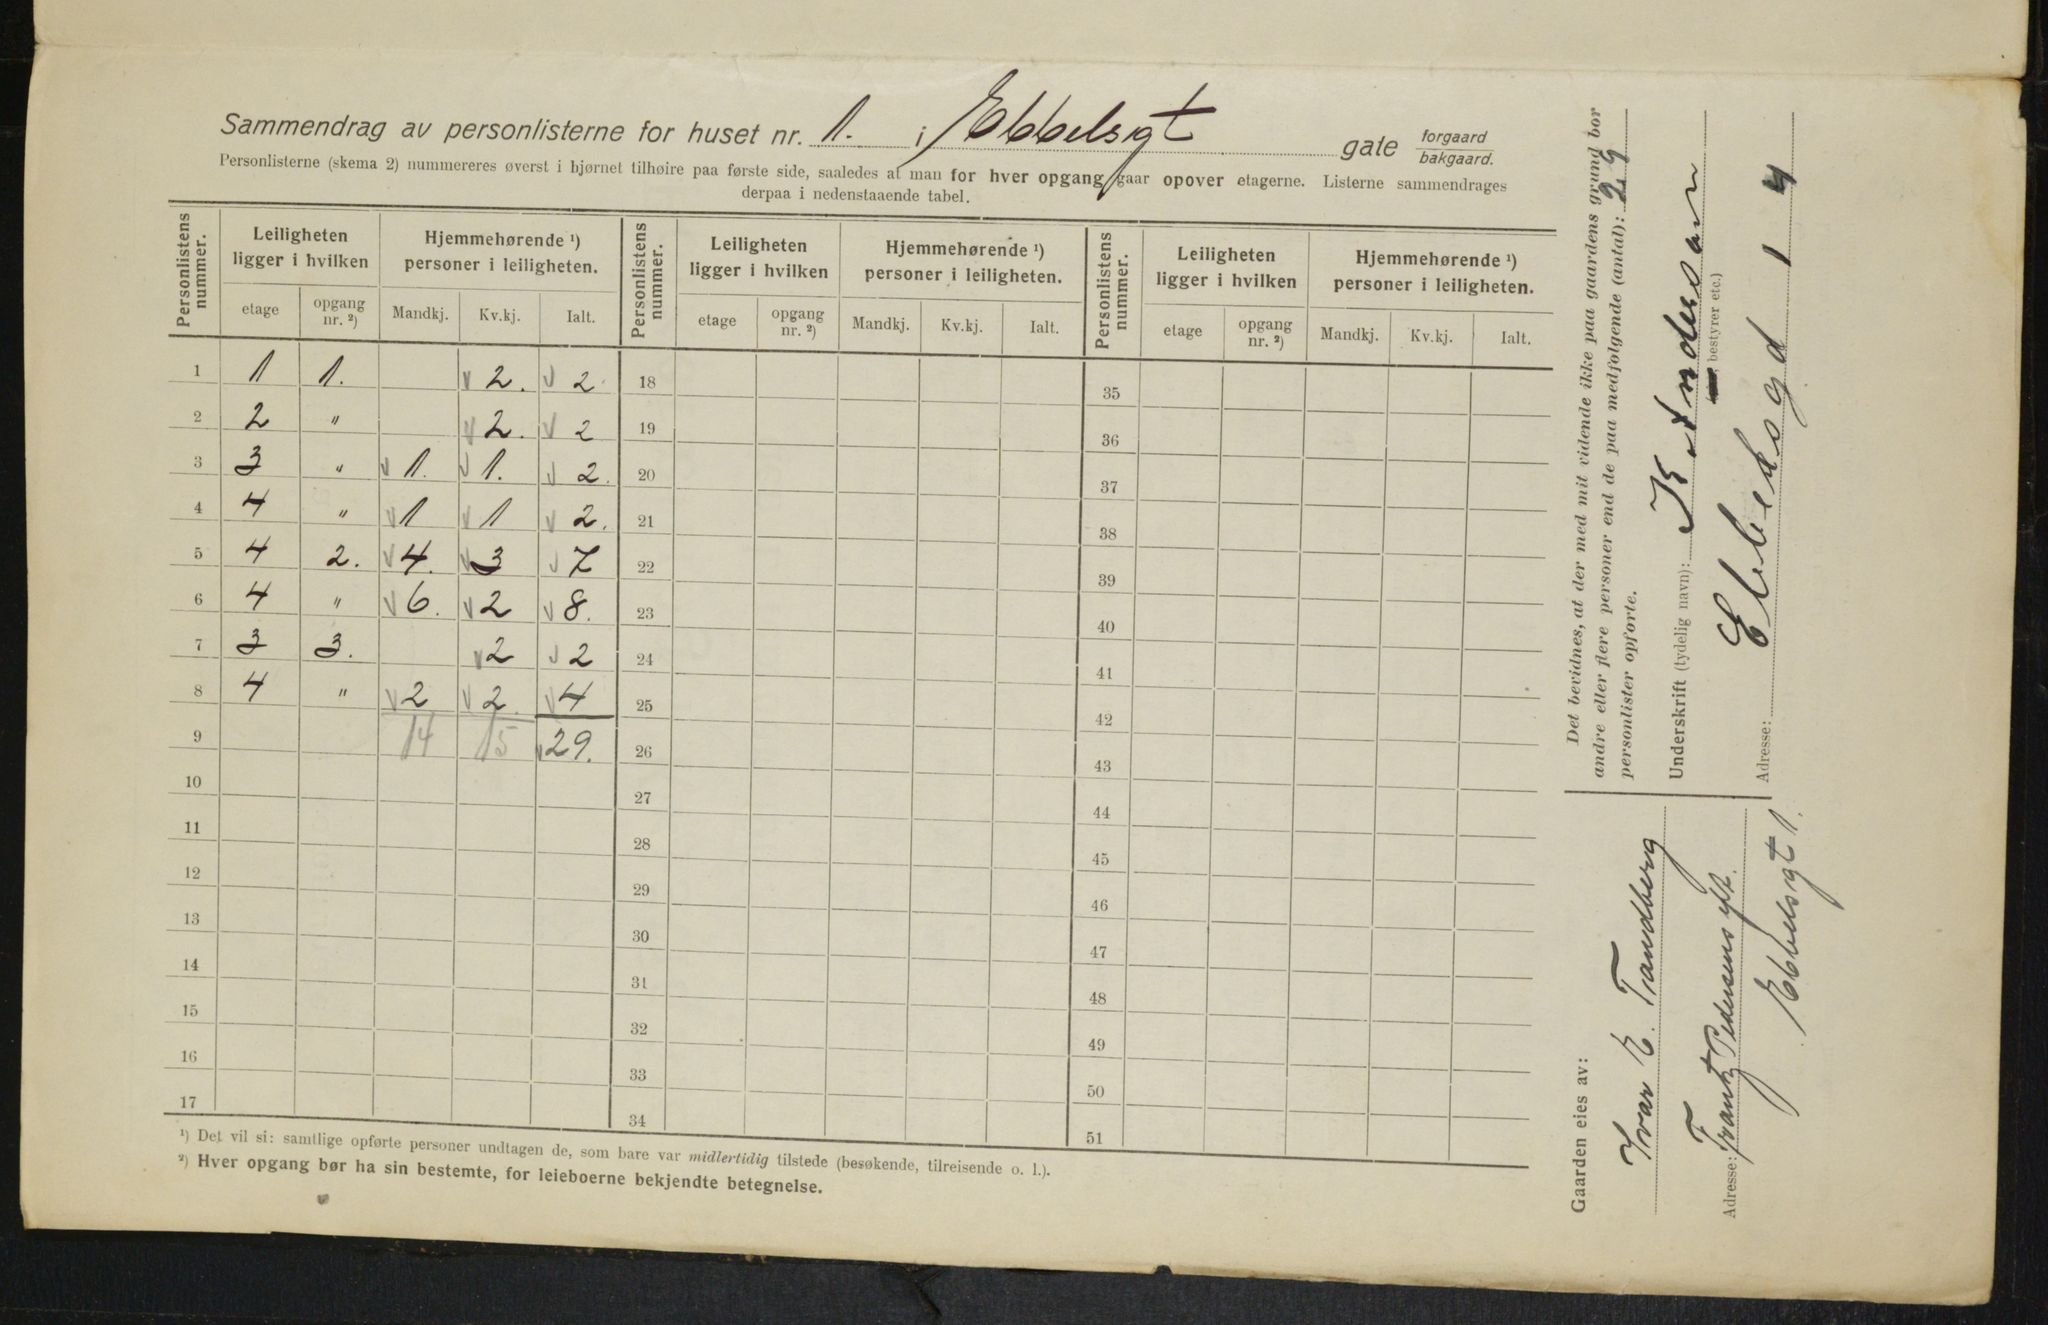 Sammendrag av personlisterne for huset nr. 1. i Ebbelsgt gate forgaard bakgaard.
Personlisterne (skema 2) nummereres øverst i hjørnet tilhøire paa første side, saaledes at man for hver opgang gaar opover etagerne. Listerne sammendrages
derpaa i nedenstaaende tabel.
Personlistens nummer. Leiligheten ligger i hvilken Hjemmehørende ¹) personer i leiligheten. Personlistens nummer. Leiligheten ligger i hvilken Hjemmehørende ¹) personer i leiligheten. Personlistens nummer. Leiligheten ligger i hvilken Hjemmehørende ¹) personer i leiligheten.
etage opgang nr. ²) Mandkj. Kv.kj. Ialt. etage opgang nr. ²) Mandkj. Kv.kj. Ialt. etage opgang nr. ²) Mandkj. Kv.kj. Ialt.
1 1 1. 2. 2 18 35
2 2 " 2. 2 19 36
3 3 " 1. 1. 2. 20 37
4 4 " 1 1 2. 21 38
5 4 2. 4. 3 7 22 39
6 4 " 6. 2 8. 23 40
7 3 3. 2 2 24 41
8 4 " 2 2. 4 25 42
9 14 15 29. 26 43
10 27 44
11 28 45
12 29 46
13 30 47
14 31 48
15 32 49
16 33 50
17 34 51
¹) Det vil si: samtlige opførte personer undtagen de, som bare var midlertidig tilstede (besøkende, tilreisende o. l.).
²) Hver opgang bør ha sin bestemte, for leieboerne bekjendte betegnelse.
Det bevidnes, at der med mit vidende ikke paa gaardens grund bor
andre eller flere personer end de paa medfølgende (antal): 29
personlister opførte.
Underskrift (tydelig navn): K Anderson
bestyrer etc.)
Adresse: Ebbelsgd 1 4
Gaarden eies av:
Ivar E. Trandberg
Adresse: Frantz Pedersens eft.
Ebbelsgt 1.